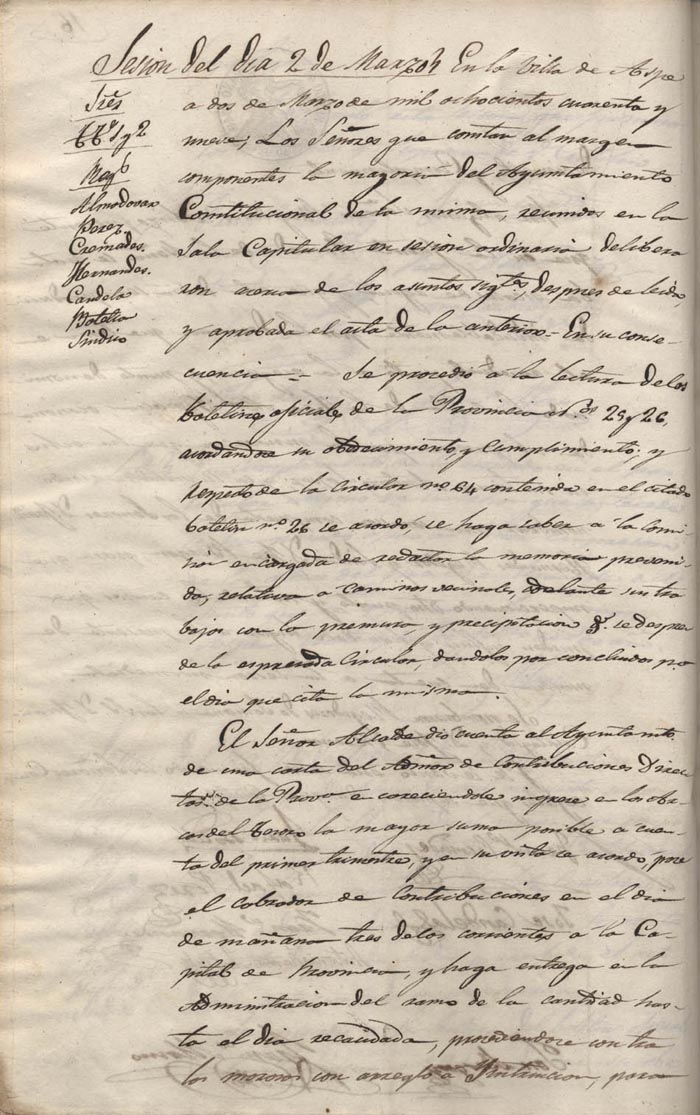 Sesion del dia 2 de Marzo En la Villa de Aspe
a dos de Marzo de mil ochocientos cuarenta y
nueve; Los Señores que constan al margen
componentes la mayoria del Ayuntamiento
Constitucional de la misma, reunidos en la
Sala Capitular en sesion ordinaria delibera
ron acerca de los asuntos sigtes, despues de leida,
y aprobada el acta de la anterior = En su conse-
cuencia = Se procedió a la lectura de los
boletines oficiales de la Provincia Nos 25 y 26,
acordandose su obedecimiento, y cumplimiento; y
respecto de la circular no 64 contenida en el citado
boletin no 26 se acordó, se haga saber a la comi
sion encargada de redactar la memoria preveni-
da, relativa a caminos vecinales, adelante sus tra
bajos con la premura, y precipitacion q. se despren
de la espresada Circular dandolos por concluidos pa
el dia que cita la misma.
El Señor Alcalde dió cuenta al Ayuntamto
de una carta del Admor de Contribuciones Direc
tas de la Prova encareciendole ingrese en las ar
cas del Tesoro la mayor suma posible a cuen-
ta del primer trimestre, y en su vista se acordó, pase
el cobrador de Contribuciones en el dia
de mañana tres de los corrientes a la Ca-
pital de Provincia, y haga entrega en la
Administracion del ramo de la cantidad has-
ta el dia recaudada, procediendose contra
los morosos con arreglo a Instruccion, para
Sres
Ttes 1 y 2
Regs
Almodovar
Perez
Cremades
Hernandes.
Candela
Botella
Sindico